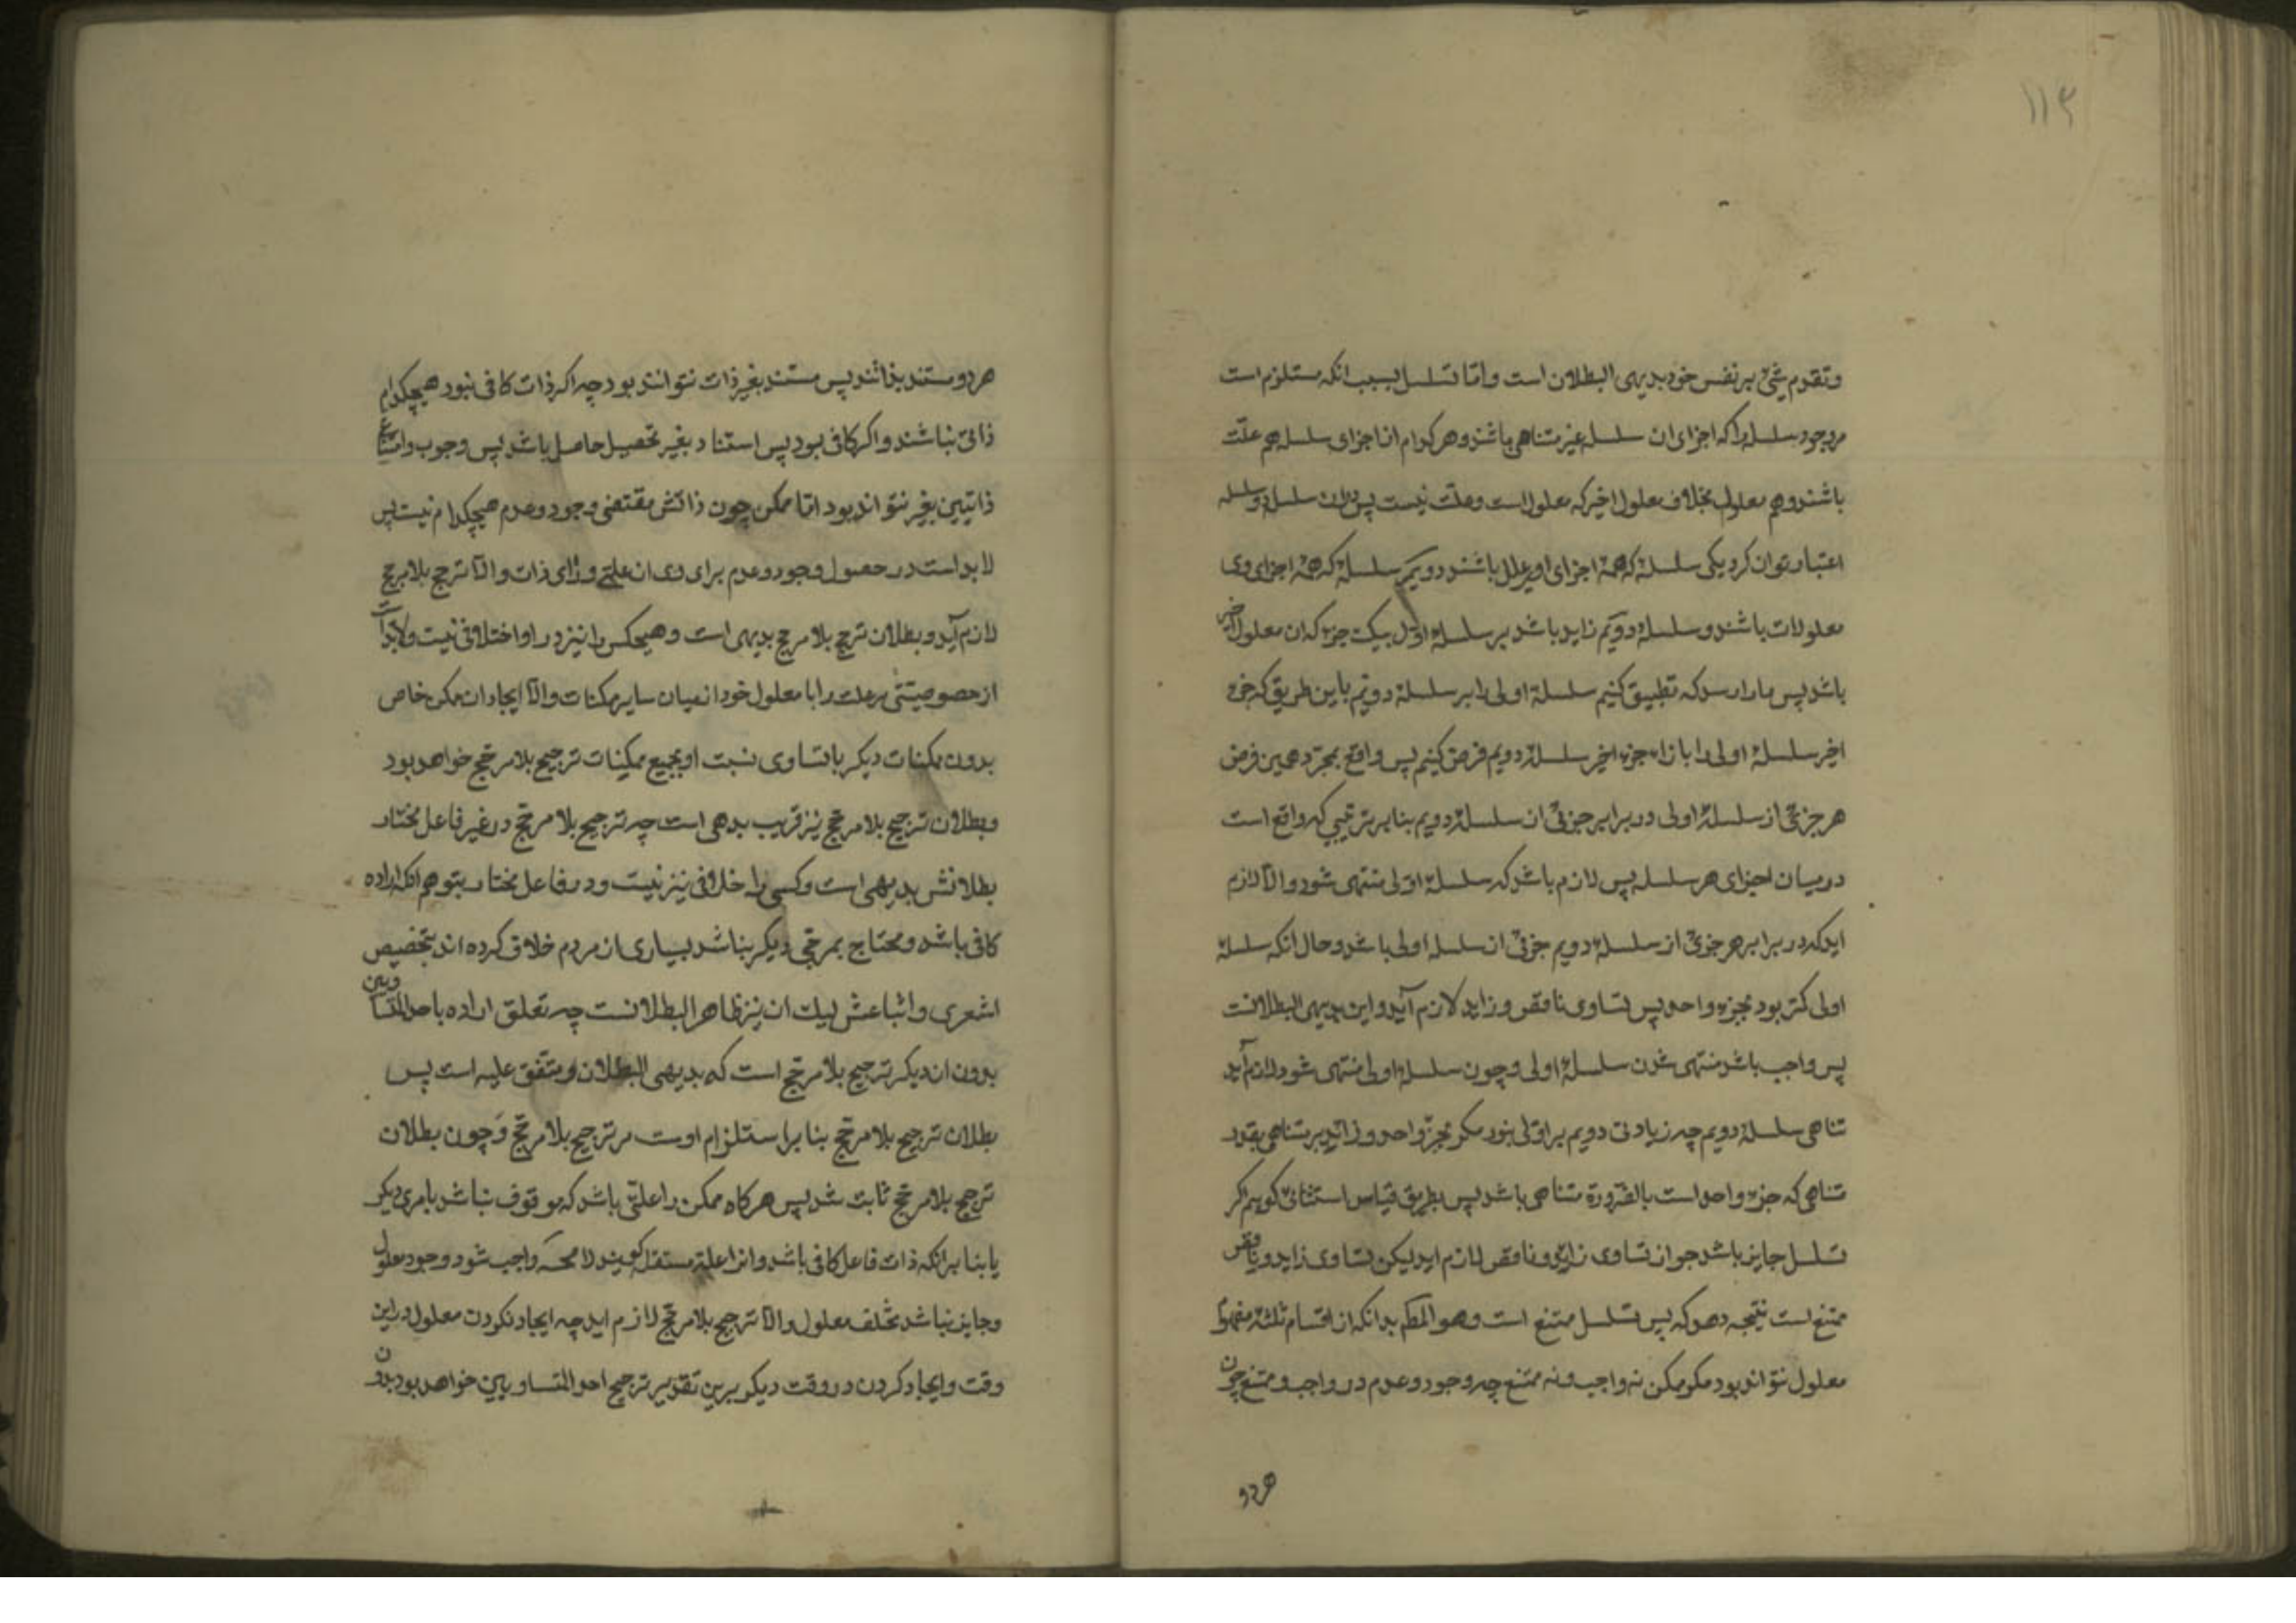 ۱۱۳
وتقدم شیٔ بر نفس خود بدیهی البطلان است واما تسلسل بسبب انکه مستلزم است
مر وجود سلسله را که اجزای ان سلسله غیر متناهی باشند وهر کدام از اجزای سلسله هم علّت
باشند وهم معلول بخلاف معلول اخیر که معلول است وعلت نیست پس دران سلسله دو سلسله
اعتبار توان کرد یکی سلسلهٔ که همهٔ اجزای او علل باشند دویم سلسلهٔ که همهٔ اجزای وی
معلولات باشند وسلسلهٔ دویم زاید باشد بر سلسلهٔ اول بیک جزء که ان معلول اخیر
باشد پس ما را رسد که تطبیق کنیم سلسلهٔ اولی را بر سلسلهٔ دویم باین طریق که جزء
اخیر سلسلهٔ اولی را بازاء جزء اخیر سلسلهٔ دویم فرض کنیم پس واقع بمجرّد همین فرض
هر جزئی از سلسلهٔ اولی در برابر جزئی از سلسلهٔ دویم بنابر ترتیبی که واقع است
در میان اجزای هر سلسله پس لازم باشد که سلسلهٔ اولی منتهی شود والّا لازم
اید که در برابر هر جزئی از سلسلهٔ دویم جزئی از سلسله اولی باشد وحال انکه سلسلهٔ
اولی کمتر بود بجزء واحد پس تساوی ناقص وزاید لازم آید واین بدیهی البطلانست
پس واجب باشد منتهی شدن سلسلهٔ اولی وچون سلسلهٔ اولی منتهی شود لازم آید
تناهی سلسلهٔ دویم چه زیادتی دویم بر اولی نبود مکر بجزء واحد وزاید بر متناهی بقدر
متناهی که جزء واحد است بالضّرورة متناهی باشد پس بطریق قیاس استثنائی کوییم اکر
تسلسل جایز باشد جواز تساوی زاید وناقص لازم اید لیکن تساوی زاید وناقص
ممتنع است نتیجه دهد که پس تسلسل ممتنع است وهو المط بدانکه از اقسام ثلثهٔ مفهوم
معلول نتواند بود مکر ممکن نه واجب ونه ممتنع چه وجود وعدم در واجب وممتنع چون
هر دو
هر دو مستند بذاتند پس مستند بغیر ذات نتوانند بود چه اکر ذات کافی نبود هیچکدام
ذاتی نباشند واکر کافی بود پس استناد بغیر تحصیل حاصل باشد پس وجوب وامتناع
ذاتیین بغیر نتواند بود اما ممکن چون ذاتش مقتضی وجود وعدم هیچکدام نیست پس
لابد است در حصول وجود وعدم برای وی از علتی ورای ذات والّا ترجح بلا مرجح
لازم آید وبطلان ترجح بلا مرجح بدیهی است وهیچکس را نیز در او اختلافی نیست ولابد است
از خصوصیتی مر علت را با معلول خود از میان سایر ممکنات والّا ایجاد ان ممکن خاص
بدون ممکنات دیکر با تساوی نسبت او بجمیع ممکنات ترجیح بلا مرجّح خواهد بود
وبطلان ترجیح بلا مرجّح نیز قریب ببدیهی است چه ترجیح بلا مرجّح در غیر فاعل مختار
بطلانش بدیهی است وکسی را خلافی نیز نیست ودر فاعل مختار بتوهم انکه اراده
کافی باشد ومحتاج بمرجّحی دیکر نباشد بسیاری از مردم خلاف کرده اند بتخصیص
اشعری واتباعش لیک ان نیز ظاهر البطلانست چه تعلق اراده باحد المتساویین
بدون ان دیکر ترجیح بلا مرجّح است که بدیهی البطلان ومتّفق علیه است پس
بطلان ترجیح بلا مرجّح بنا بر استلزام اوست مر ترجیح بلا مرجّح را وچون بطلان
ترجیح بلا مرجّح ثابت شد پس هر کاه ممکن را علتی باشد که موقوف نباشد بامری دیکر
یا بنا بر انکه ذات فاعل کافی باشد وانرا علهٔ مستقل کویند لا محه واجب شود وجود معلول
وجایز نباشد تخلف معلول والّا ترجیح بلا مرجّح لازم اید چه ایجاد نکردن معلول در این
وقت وایجاد کردن در وقت دیکر برین تقدیر ترجیح احد المتساویین خواهد بود بدون